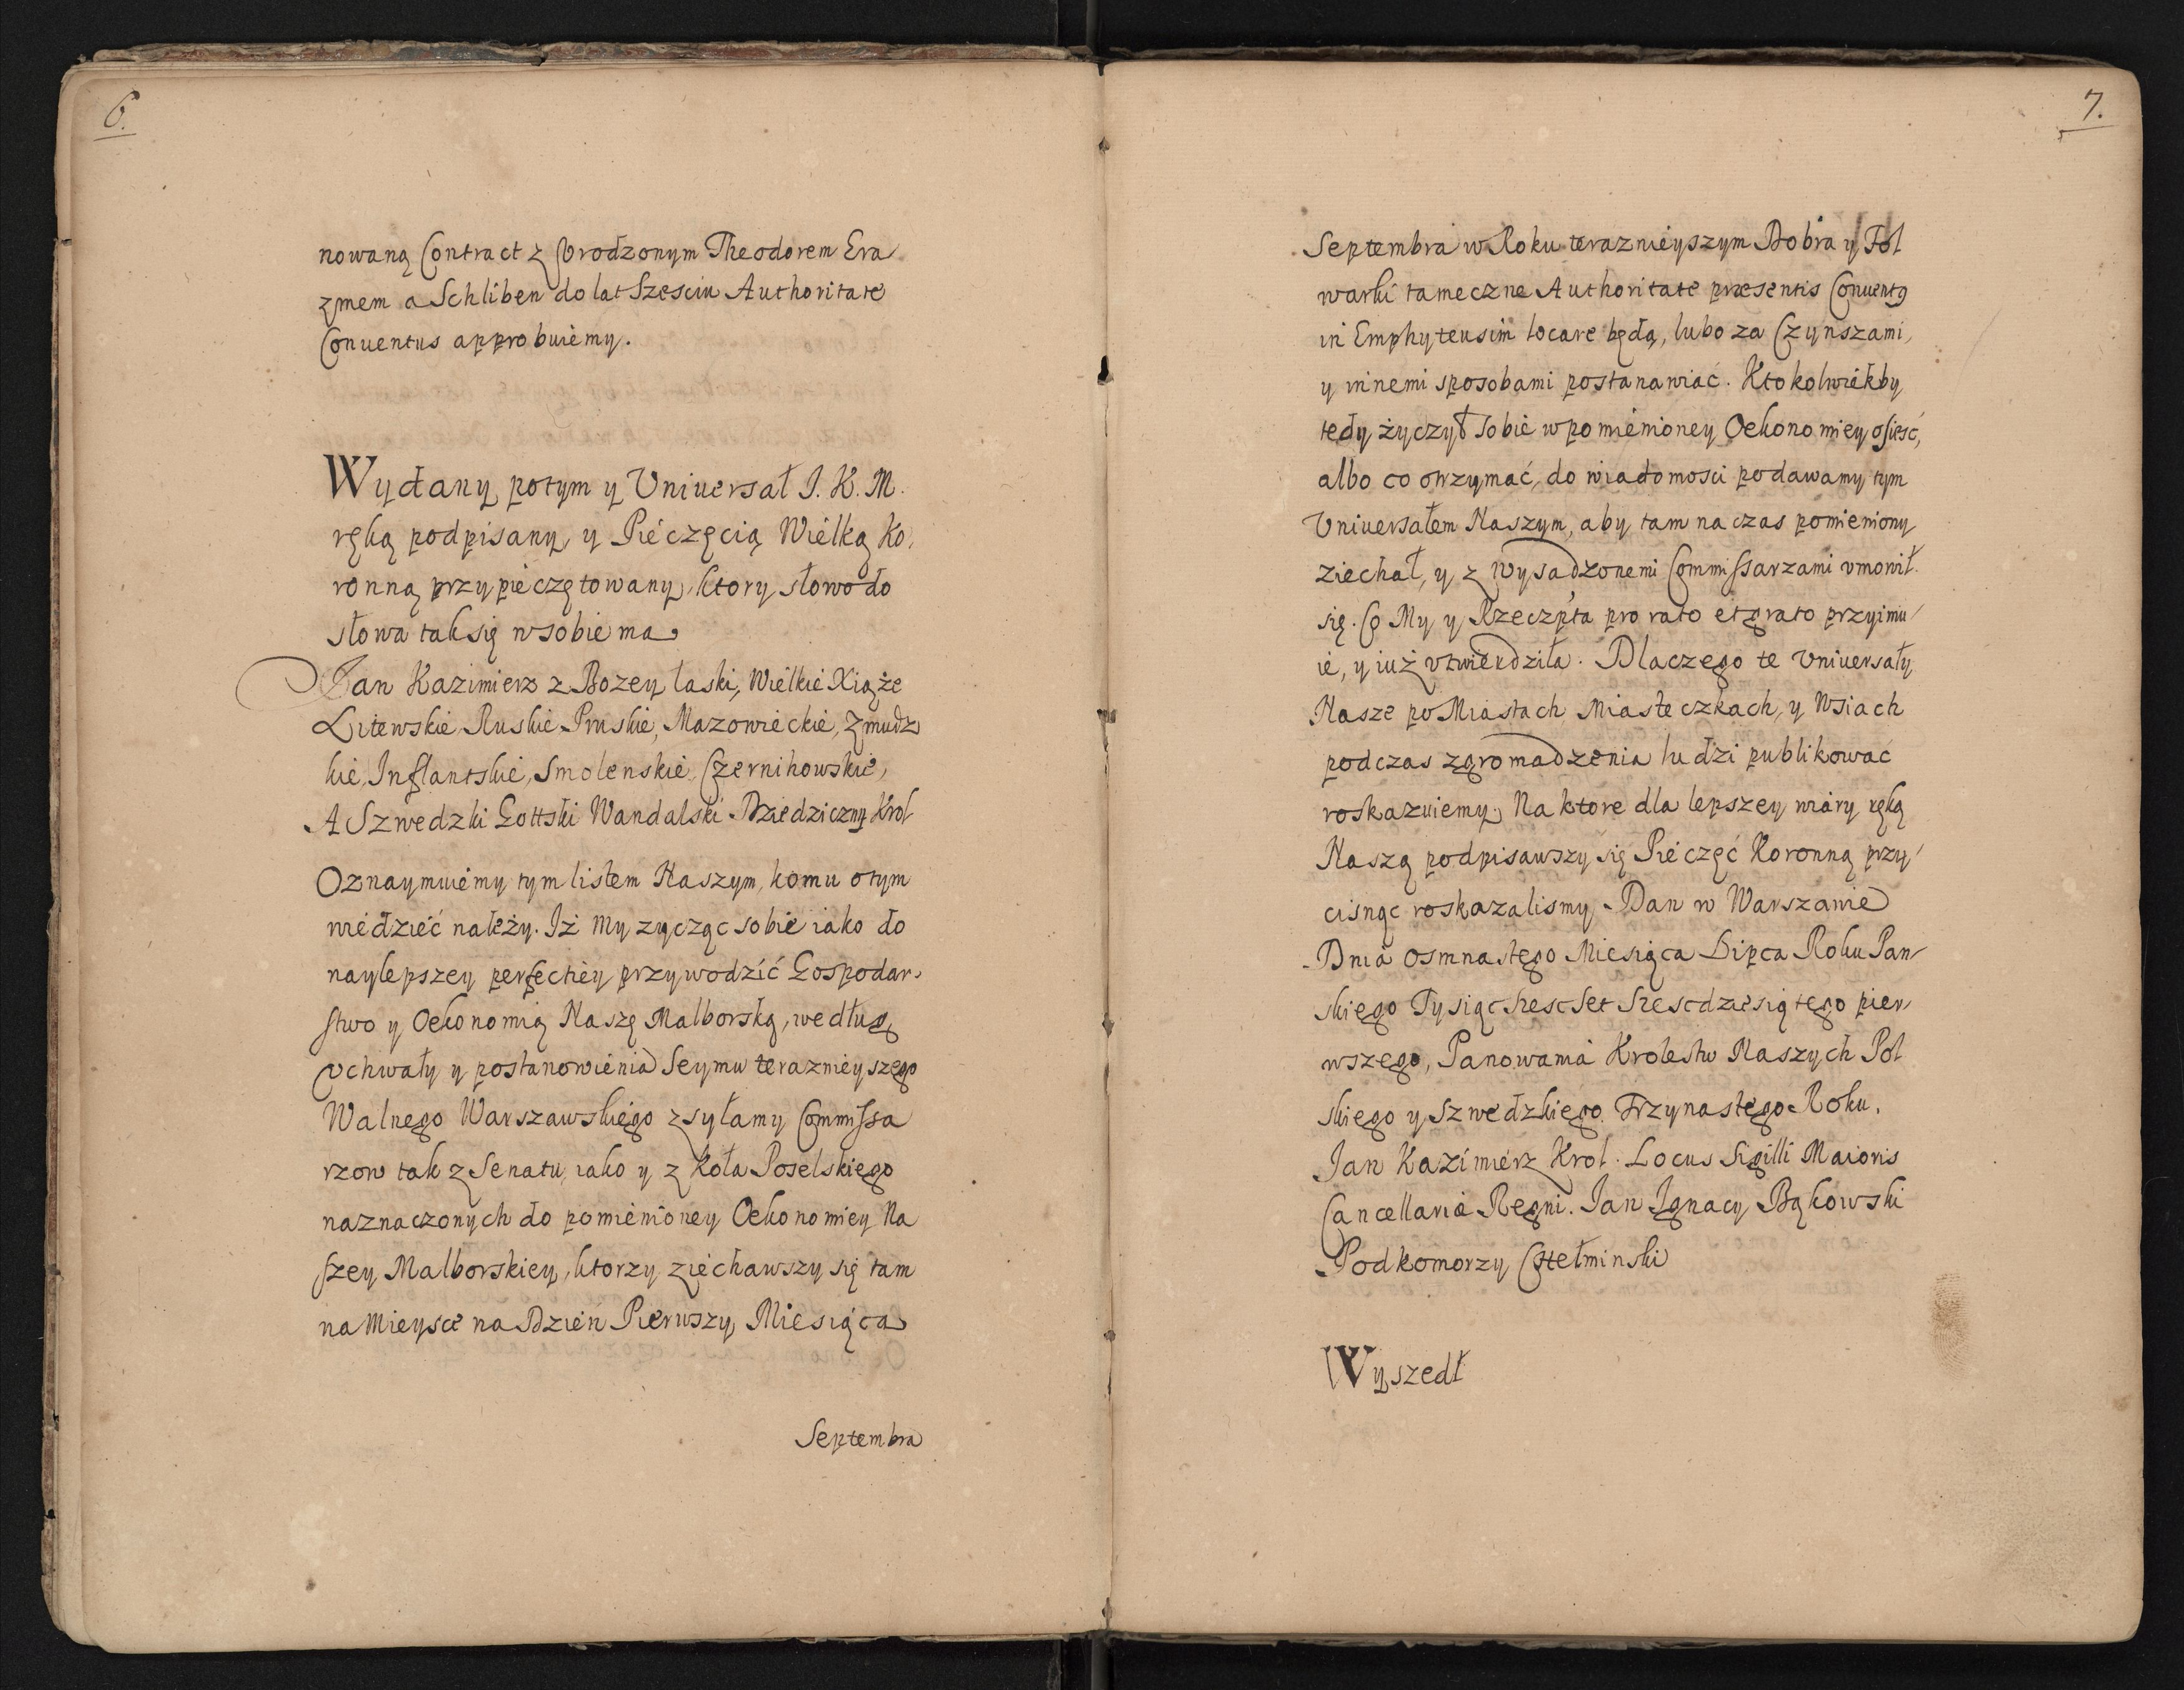 6.
nowaną Contract z Vrodzonym Theodorem Era
zmem a Schliben do lat Szesciu Authoritate
Conuentus approbuiemy.
Wydany potym y Vniuersał J. K. M.
ręką podpisany, y Pieczęcią Wielką Ko,
ronną przypieczętowany, ktory słowo do
słowa tak się w sobie ma
Jan Kazimierz z Bozey łaski, Wielkie Xiąże
Litewskie, Ruskie Pruskie, Mazowieckie, Zmudz
kie, Inflantskie, Smolenskie Czernihowskie,
A Szwedzki Gottski Wandalski Dziedziczny Krol
Oznaymuiemy tym listem Naszym, komu o tym
wiedzieć należy. Iż My zycząc sobie iako do
naylepszey perfectiey przywodzić Gospodar,
stwo y Oekonomią Naszę Malborską, według
vchwały y postanowienia Seymu teraznieyszego
Walnego Warszawskiego zsyłamy Commissa
rzow tak z Senatu, iako y z Koła Poselskiego
naznaczonych do pomienioney Oekonomiey Na
szey Malborskiey, ktorzy ziechawszy się tam
na Mieysce na Dzień Pierwszy Miesiąca
Septembra
7.
Septembra w Roku teraznieyszym Dobra y Fol
warki tameczne Authoritate præsentis Conuentꝯ
in Emphyteusim locare będą, lubo za Czynszami,
y innemi sposobami postanawiać. Ktokolwiekby
tedy życzył sobie w pomienioney Oekonomiey osiesć,
albo co otrzymać, do wiadomosci podawamy tym
Vniuersałem Naszym, aby tam na czas pomieniony
ziechał, y z wysadzonemi Commissarzami vmowił
się. Co My y Rzeczpta pro rato et grato przyimu/
ie, y iuż vtwierdziła. Dlaczego te Vniuersały
Nasze po Miastach Miasteczkach, y Wsiach
podczas zgromadzenia ludzi publikować
roskazuiemy, Na ktore dla lepszey wiary ręką
Naszą podpisawszy się Pieczęć Koronną przy/
cisnąc roskazalismy. Dan w Warszawie
Dnia osmnastego Miesiąca Lipca Roku Pan/
skiego Tysiąc Szesc Set Szescdziesiątego pier/
wszego, Panowania Krolestw Naszych Pol
skiego y Szwedzkiego Trzynastego Roku.
Jan Kazimierz Krol. Locus Sigilli Maioris
Cancellariæ Regni. Jan Ignacy Bąkowski
Podkomorzy Chełminski
Wyszedł